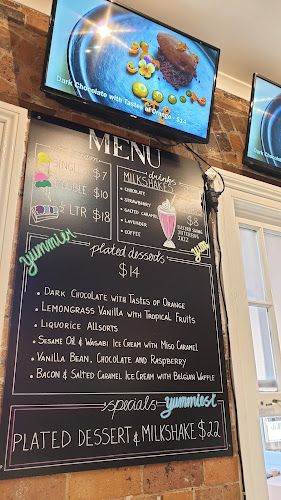 Dark Chocolate with Tastes of Orange - $14
Dark Choco
MENU
SINGLE $7
DOUBLE $10
1/2 LTR $18
drinks
MILKSHAKES
• CHOCOLATE
• STRAWBERRY
• SALTED CARAMEL
• LAVENDER
• COFFEE
$8
yummiest
yum
plated desserts
$14
• DARK CHOCOLATE WITH TASTES OF ORANGE
• LEMONGRASS VANILLA WITH TROPICAL FRUITS
• LIQUORICE ALLSORTS
• SESAME OIL & WASABI ICE CREAM WITH MISO CARAMEL
• VANILLA BEAN, CHOCOLATE AND RASPBERRY
• BACON & SALTED CARAMEL ICE CREAM WITH BELGIAN WAFFLE
specials yummiest
PLATED DESSERT & MILKSHAKE $22